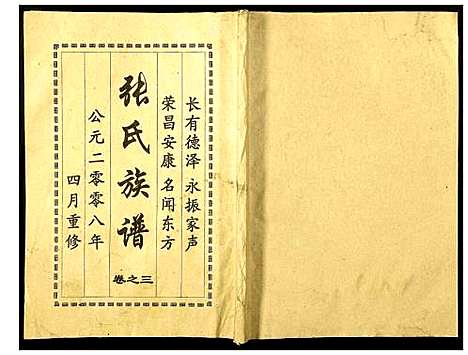 长有德泽 永振家声
荣昌安康 名闻东方
张氏族谱
卷之三
公元二零零八年
四月重修